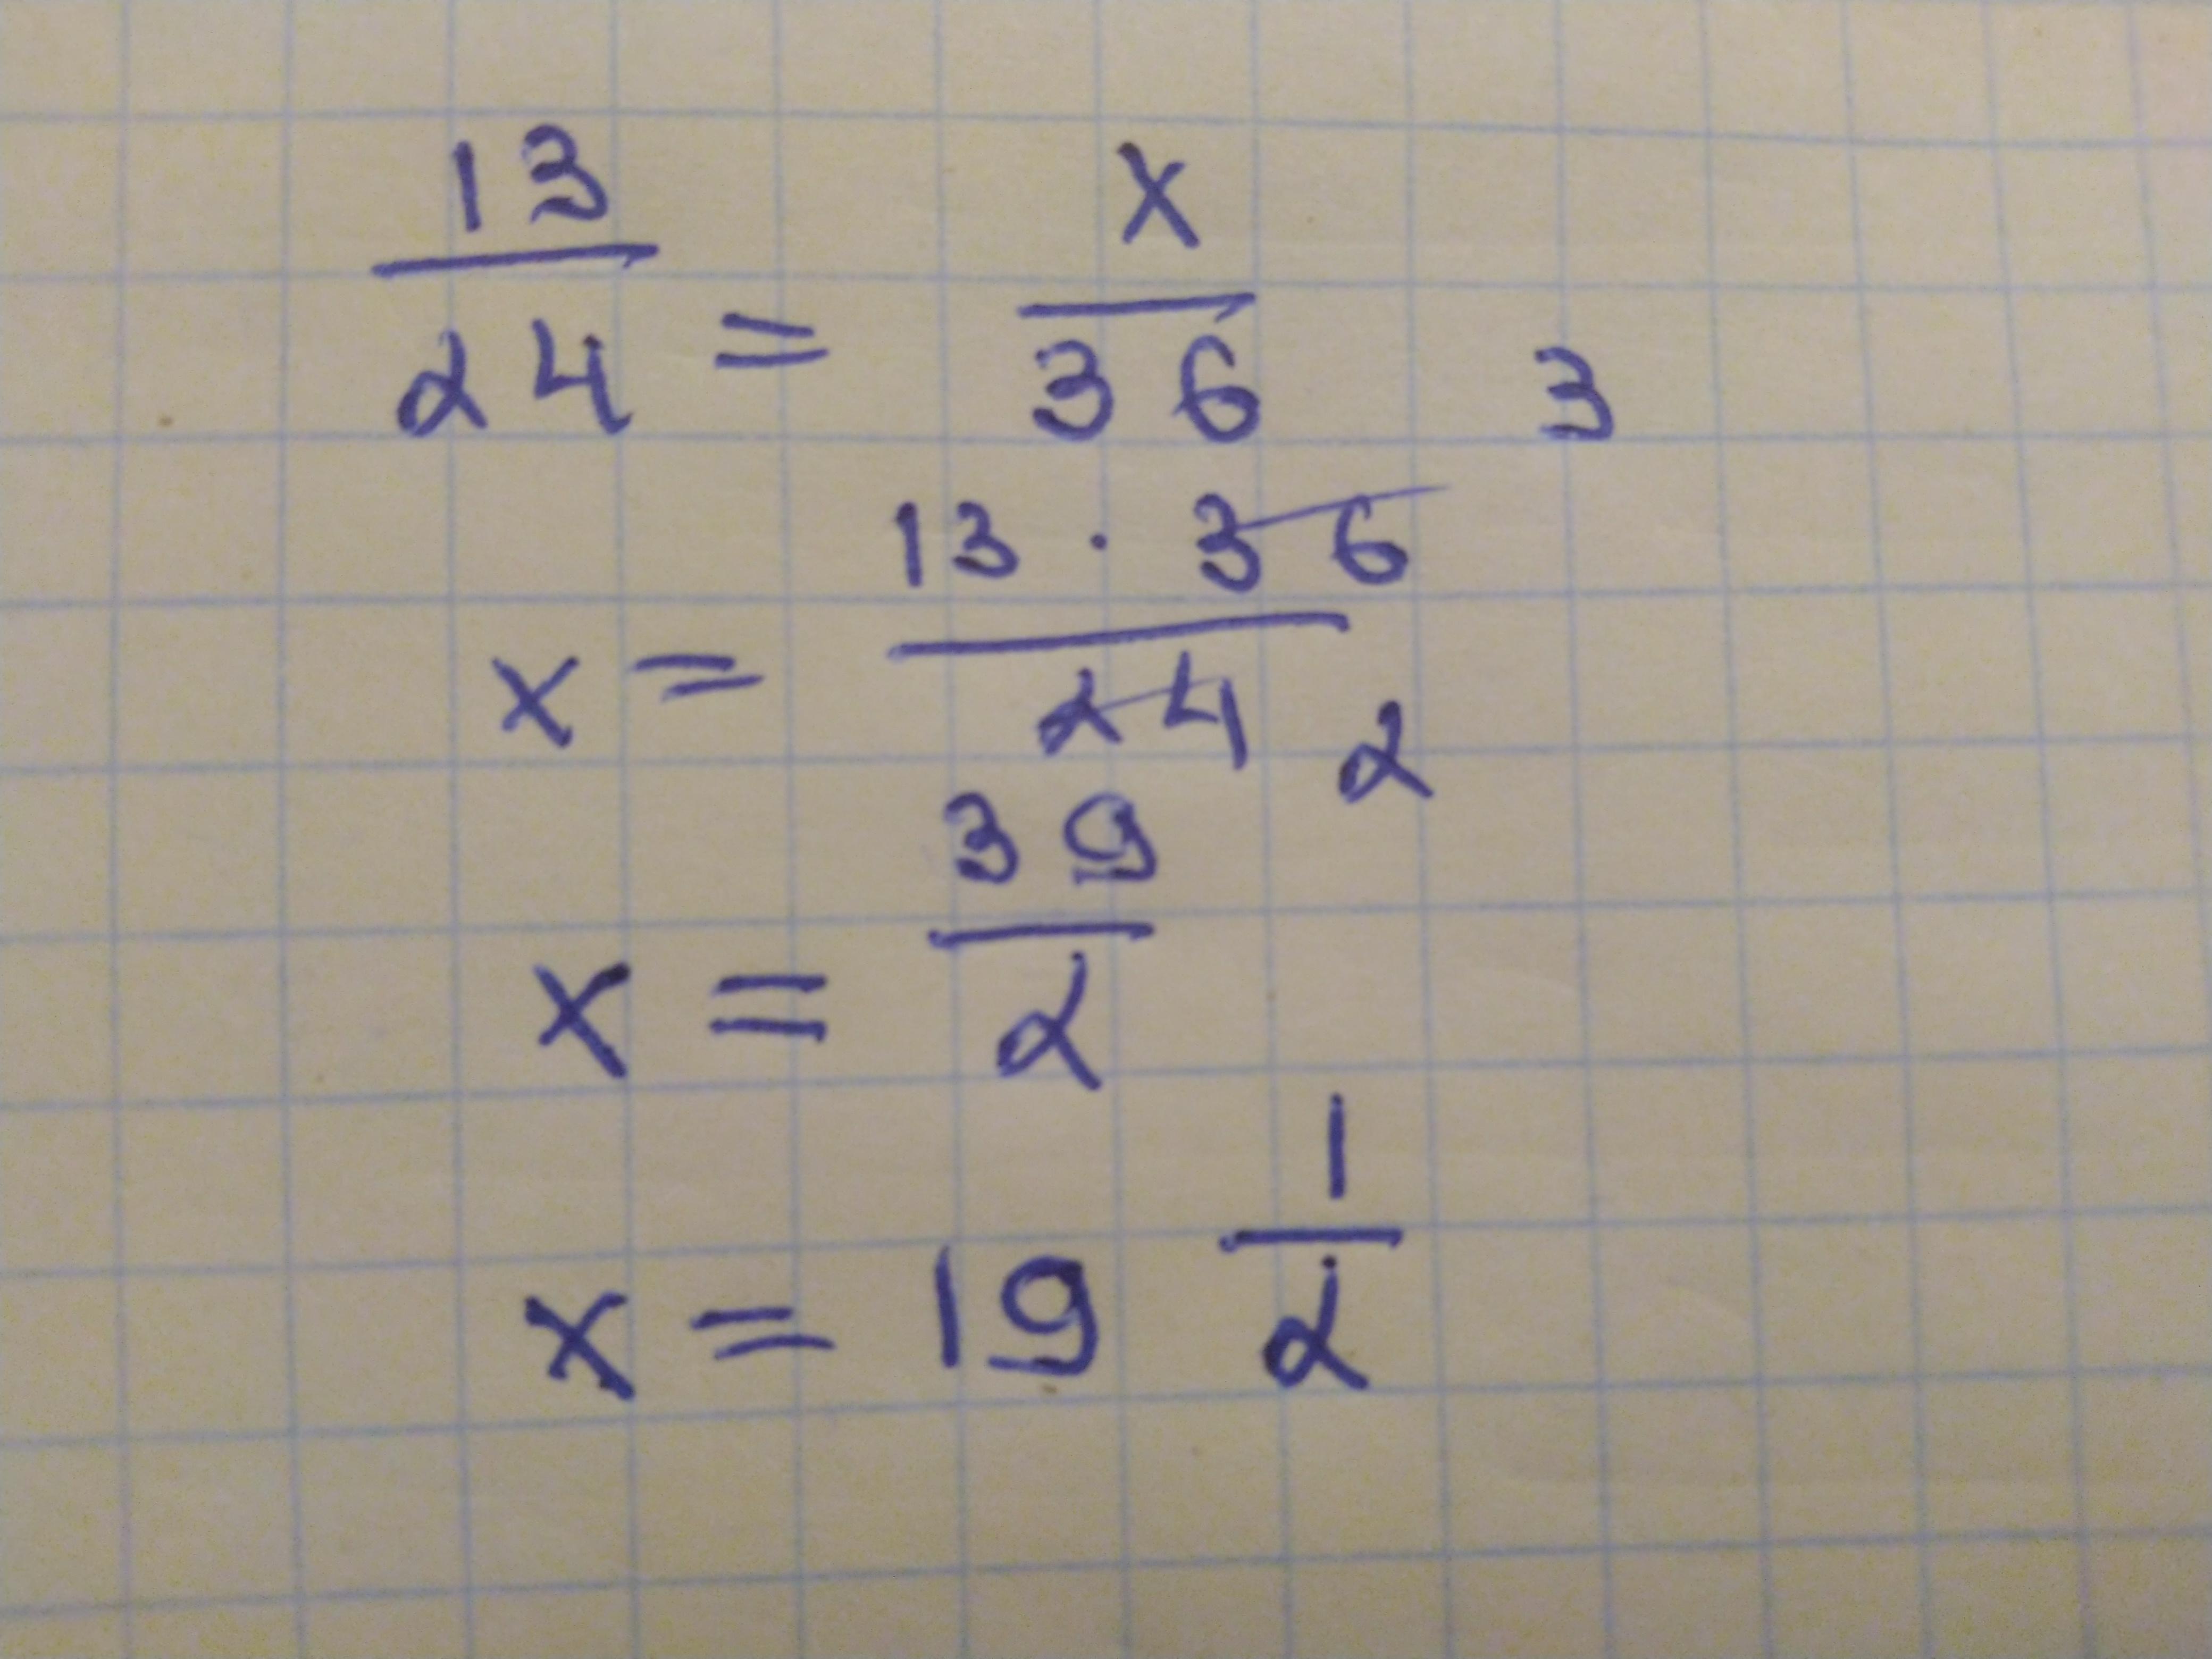 13/24 = x/36
x = 13 · 36 3 / 24 2
x = 39/2
x = 19 1/2